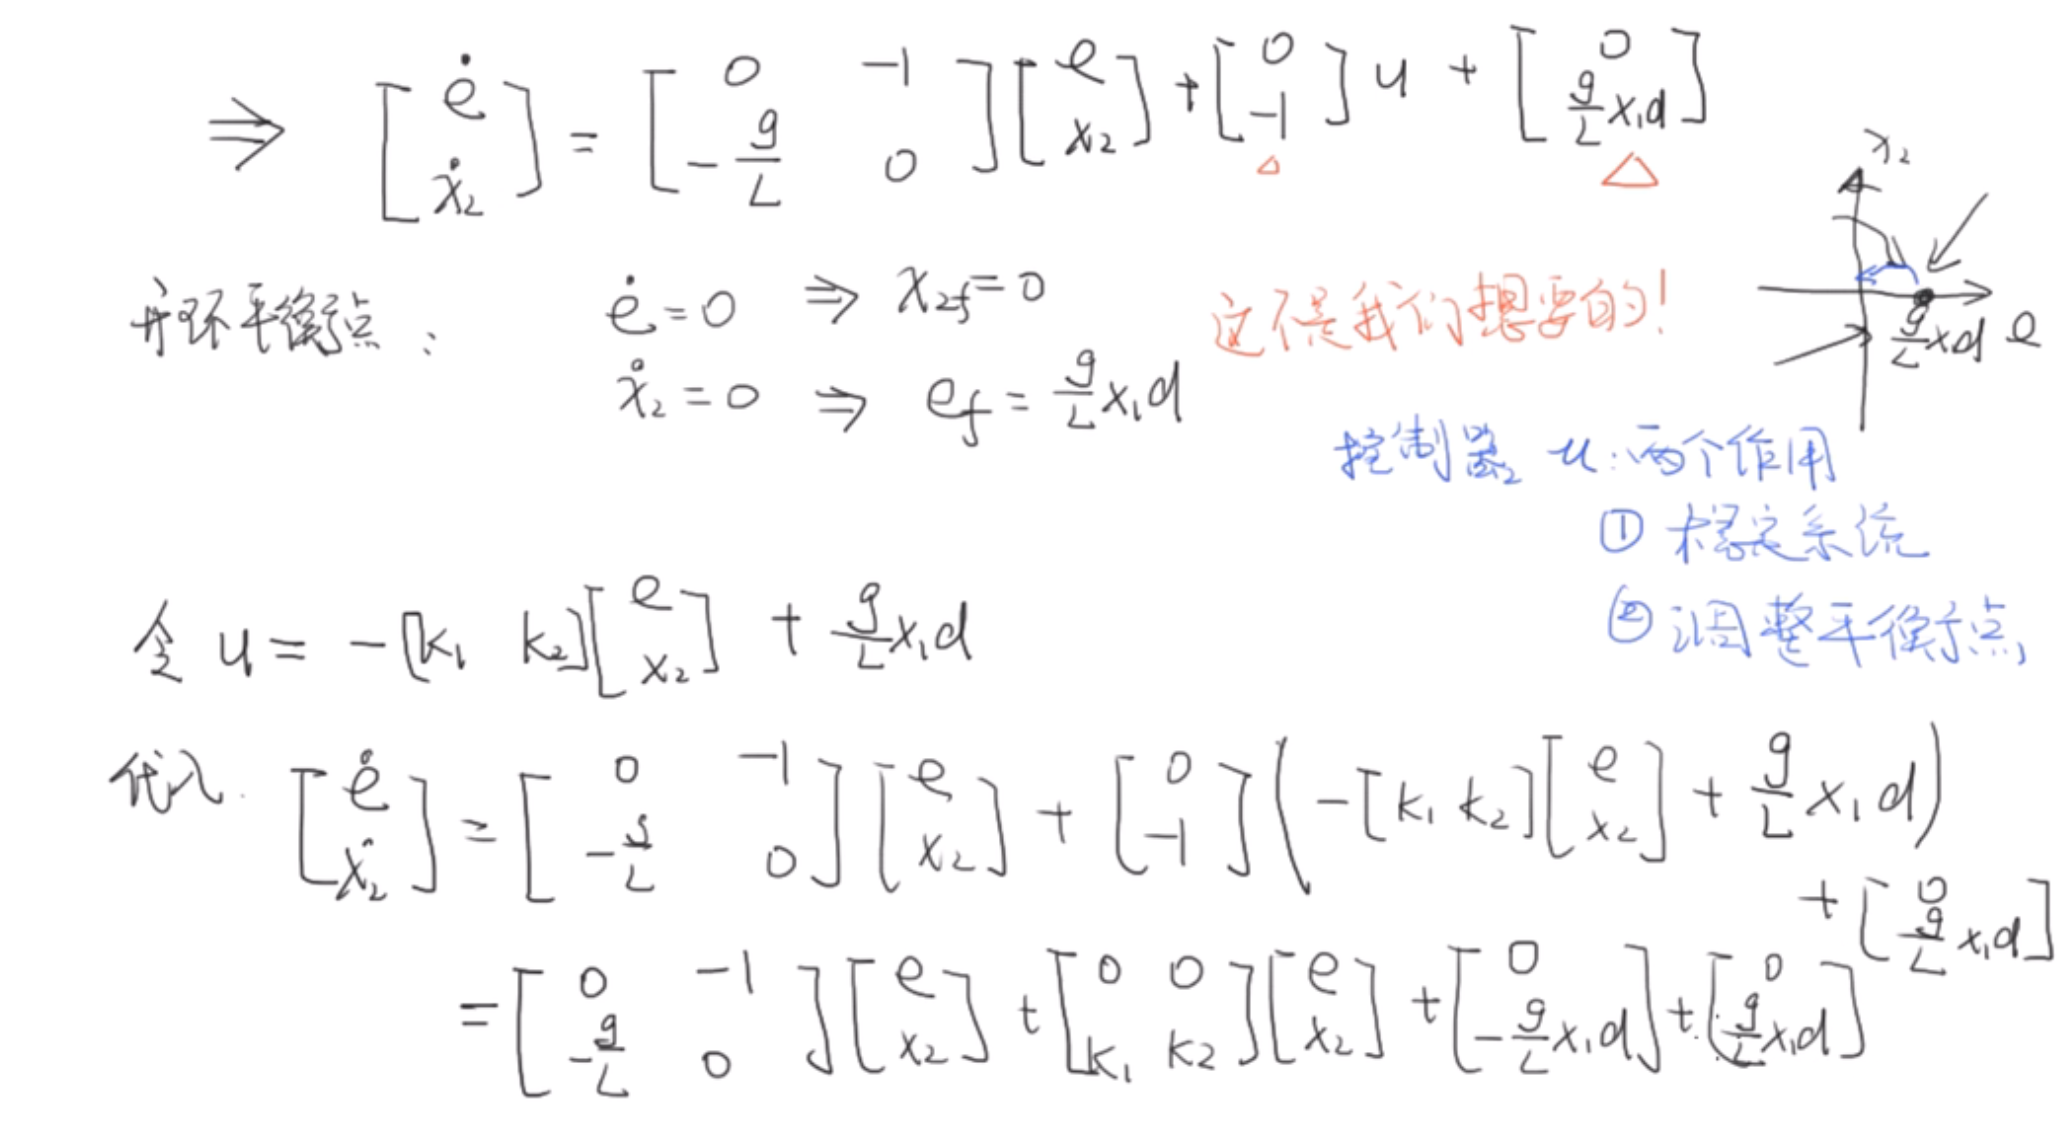 ⇒ [ė ẋ₂] = [0 -1 -g/L 0] [e x₂] + [0 -1] u + [0 g/L x₁d]
x₂
开环平衡点: ė = 0 ⇒ x₂f = 0 这不是我们想要的!
ẋ₂ = 0 ⇒ ef = g/L x₁d
g/L xd e
控制器 u: 两个作用
① 稳定系统
② 调整平衡点
令 u = -[k₁ k₂] [e x₂] + g/L x₁d
代入 [ė ẋ₂] = [0 -1 -g/L 0] [e x₂] + [0 -1] (-[k₁ k₂] [e x₂] + g/L x₁d)
+ [0 g/L x₁d]
= [0 -1 -g/L 0] [e x₂] + [0 0 k₁ k₂] [e x₂] + [0 -g/L x₁d] + [0 g/L x₁d]